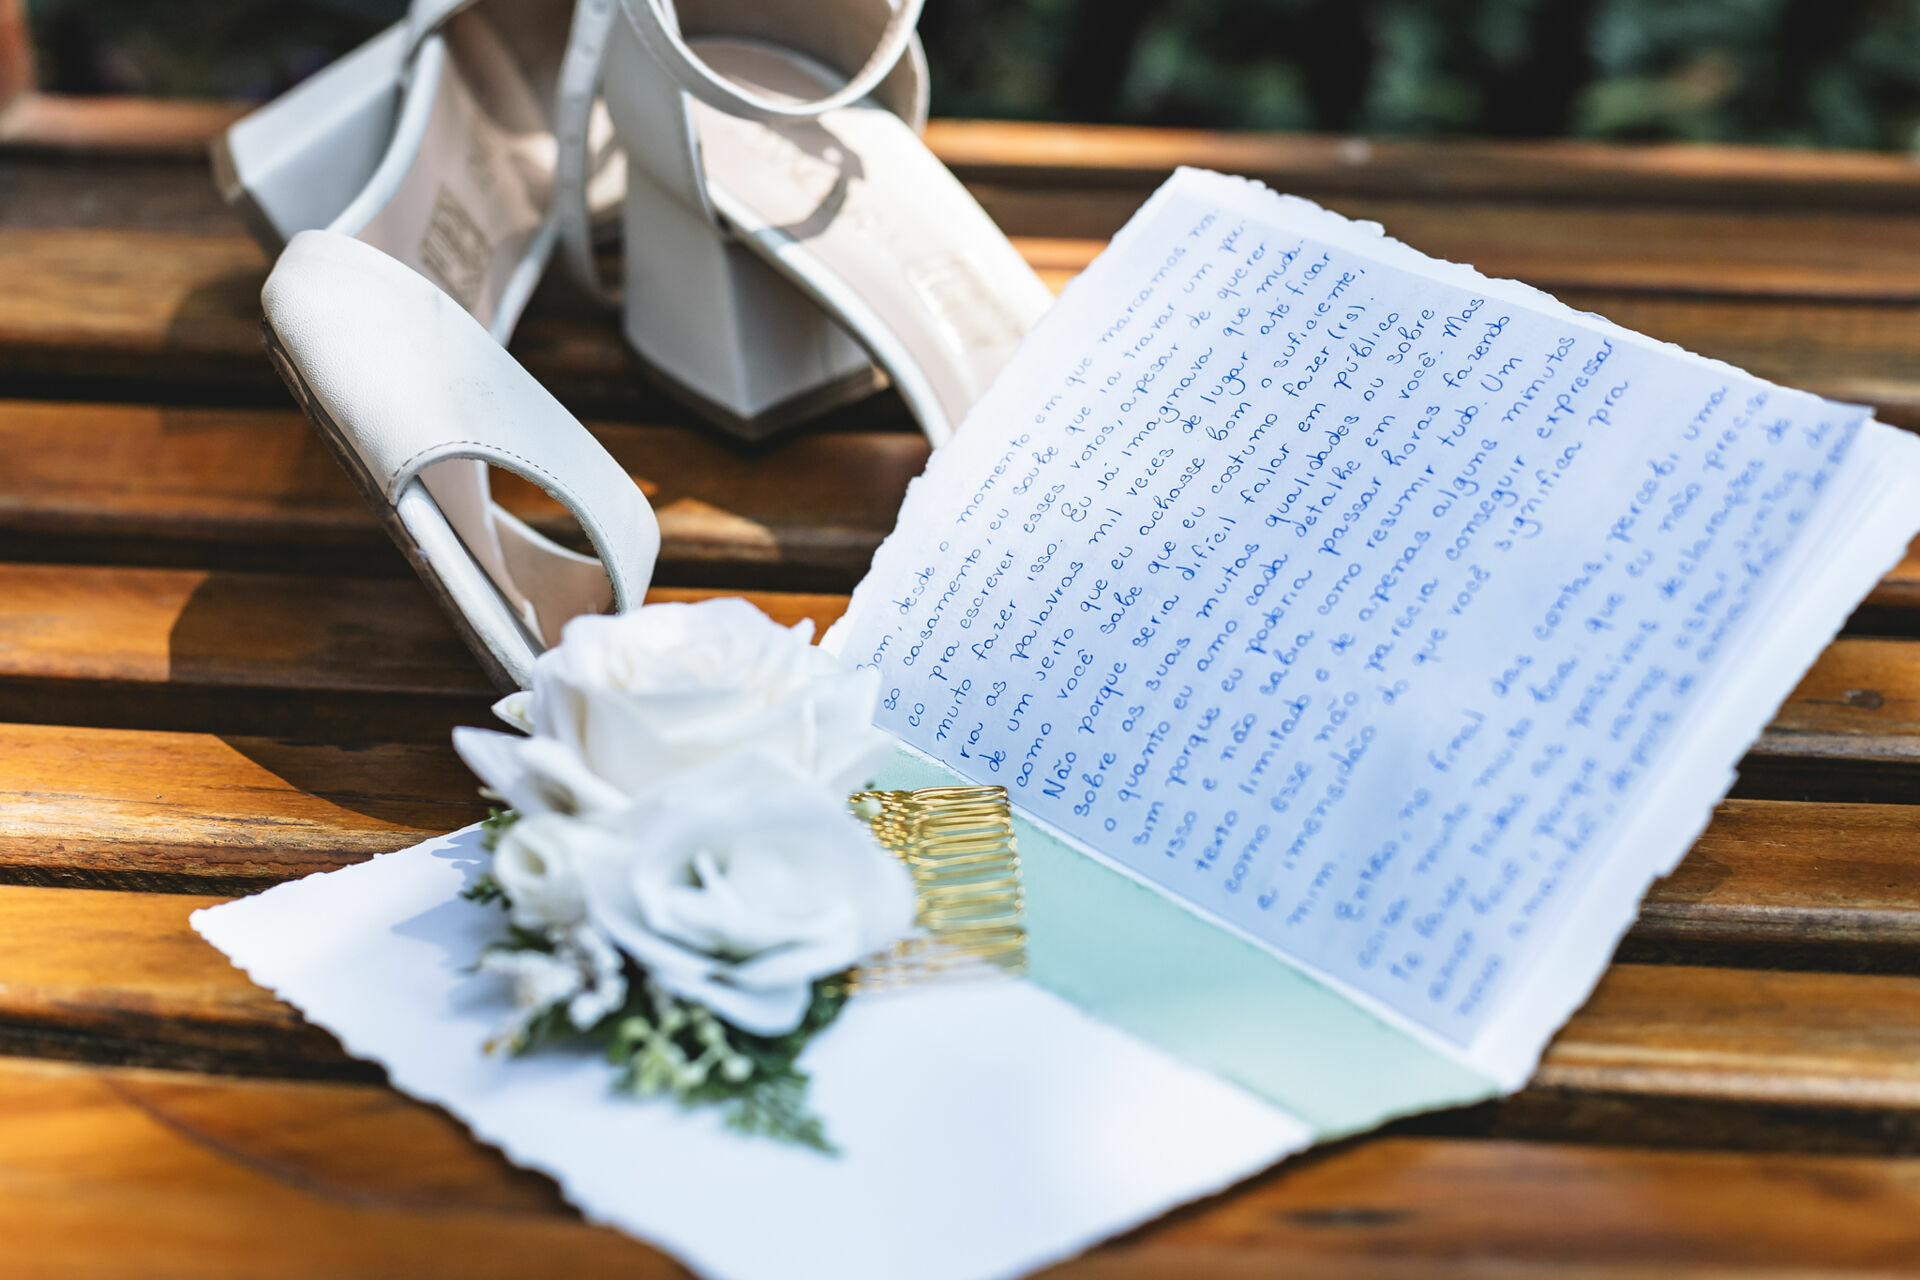 Bom, desde o momento em que marcamos nos-
so casamento, eu soube que ia travar um pou-
co pra escrever esses votos, apesar de querer
muito fazer isso. Eu já imaginava que muda-
ria as palavras mil vezes de lugar até ficar
de um jeito que eu achasse bom o suficiente,
como você sabe que eu costumo fazer (rs).
Não porque seria difícil falar em público
sobre as suas muitas qualidades ou sobre
o quanto eu amo cada detalhe em você. Mas
sim porque eu poderia passar horas fazendo
isso e não sabia como resumir tudo. Um
texto limitado e de apenas alguns minutos
como esse não parecia conseguir expressar
a imensidão do que você significa pra
mim.
Então, no final das contas, percebi uma
coisa muito muito boa: que eu não preciso
te fazer todas as possíveis declarações de
amor hoje, porque vamos estar juntos
amanhã, depois de amanhã e